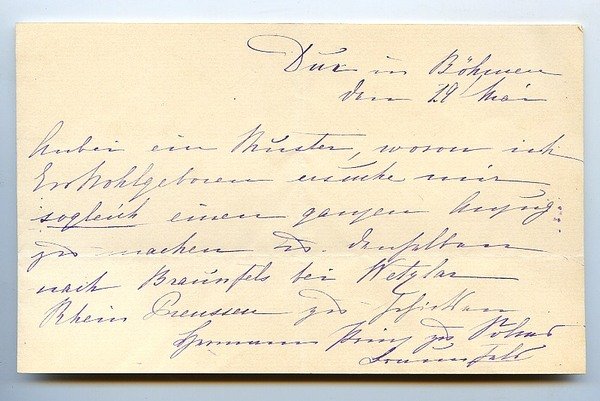 Dux in Böhmen
den 29 Mai
Anbei ein Muster, wovon ich
Ew Wohlgeboren ersuche mir
sogleich einen ganzen Anzug
zu machen u. denselben
nach Braunfels bei Wetzlar
Rhein Preussen zu schicken
Hermann Prinz zu Solms
Braunfels